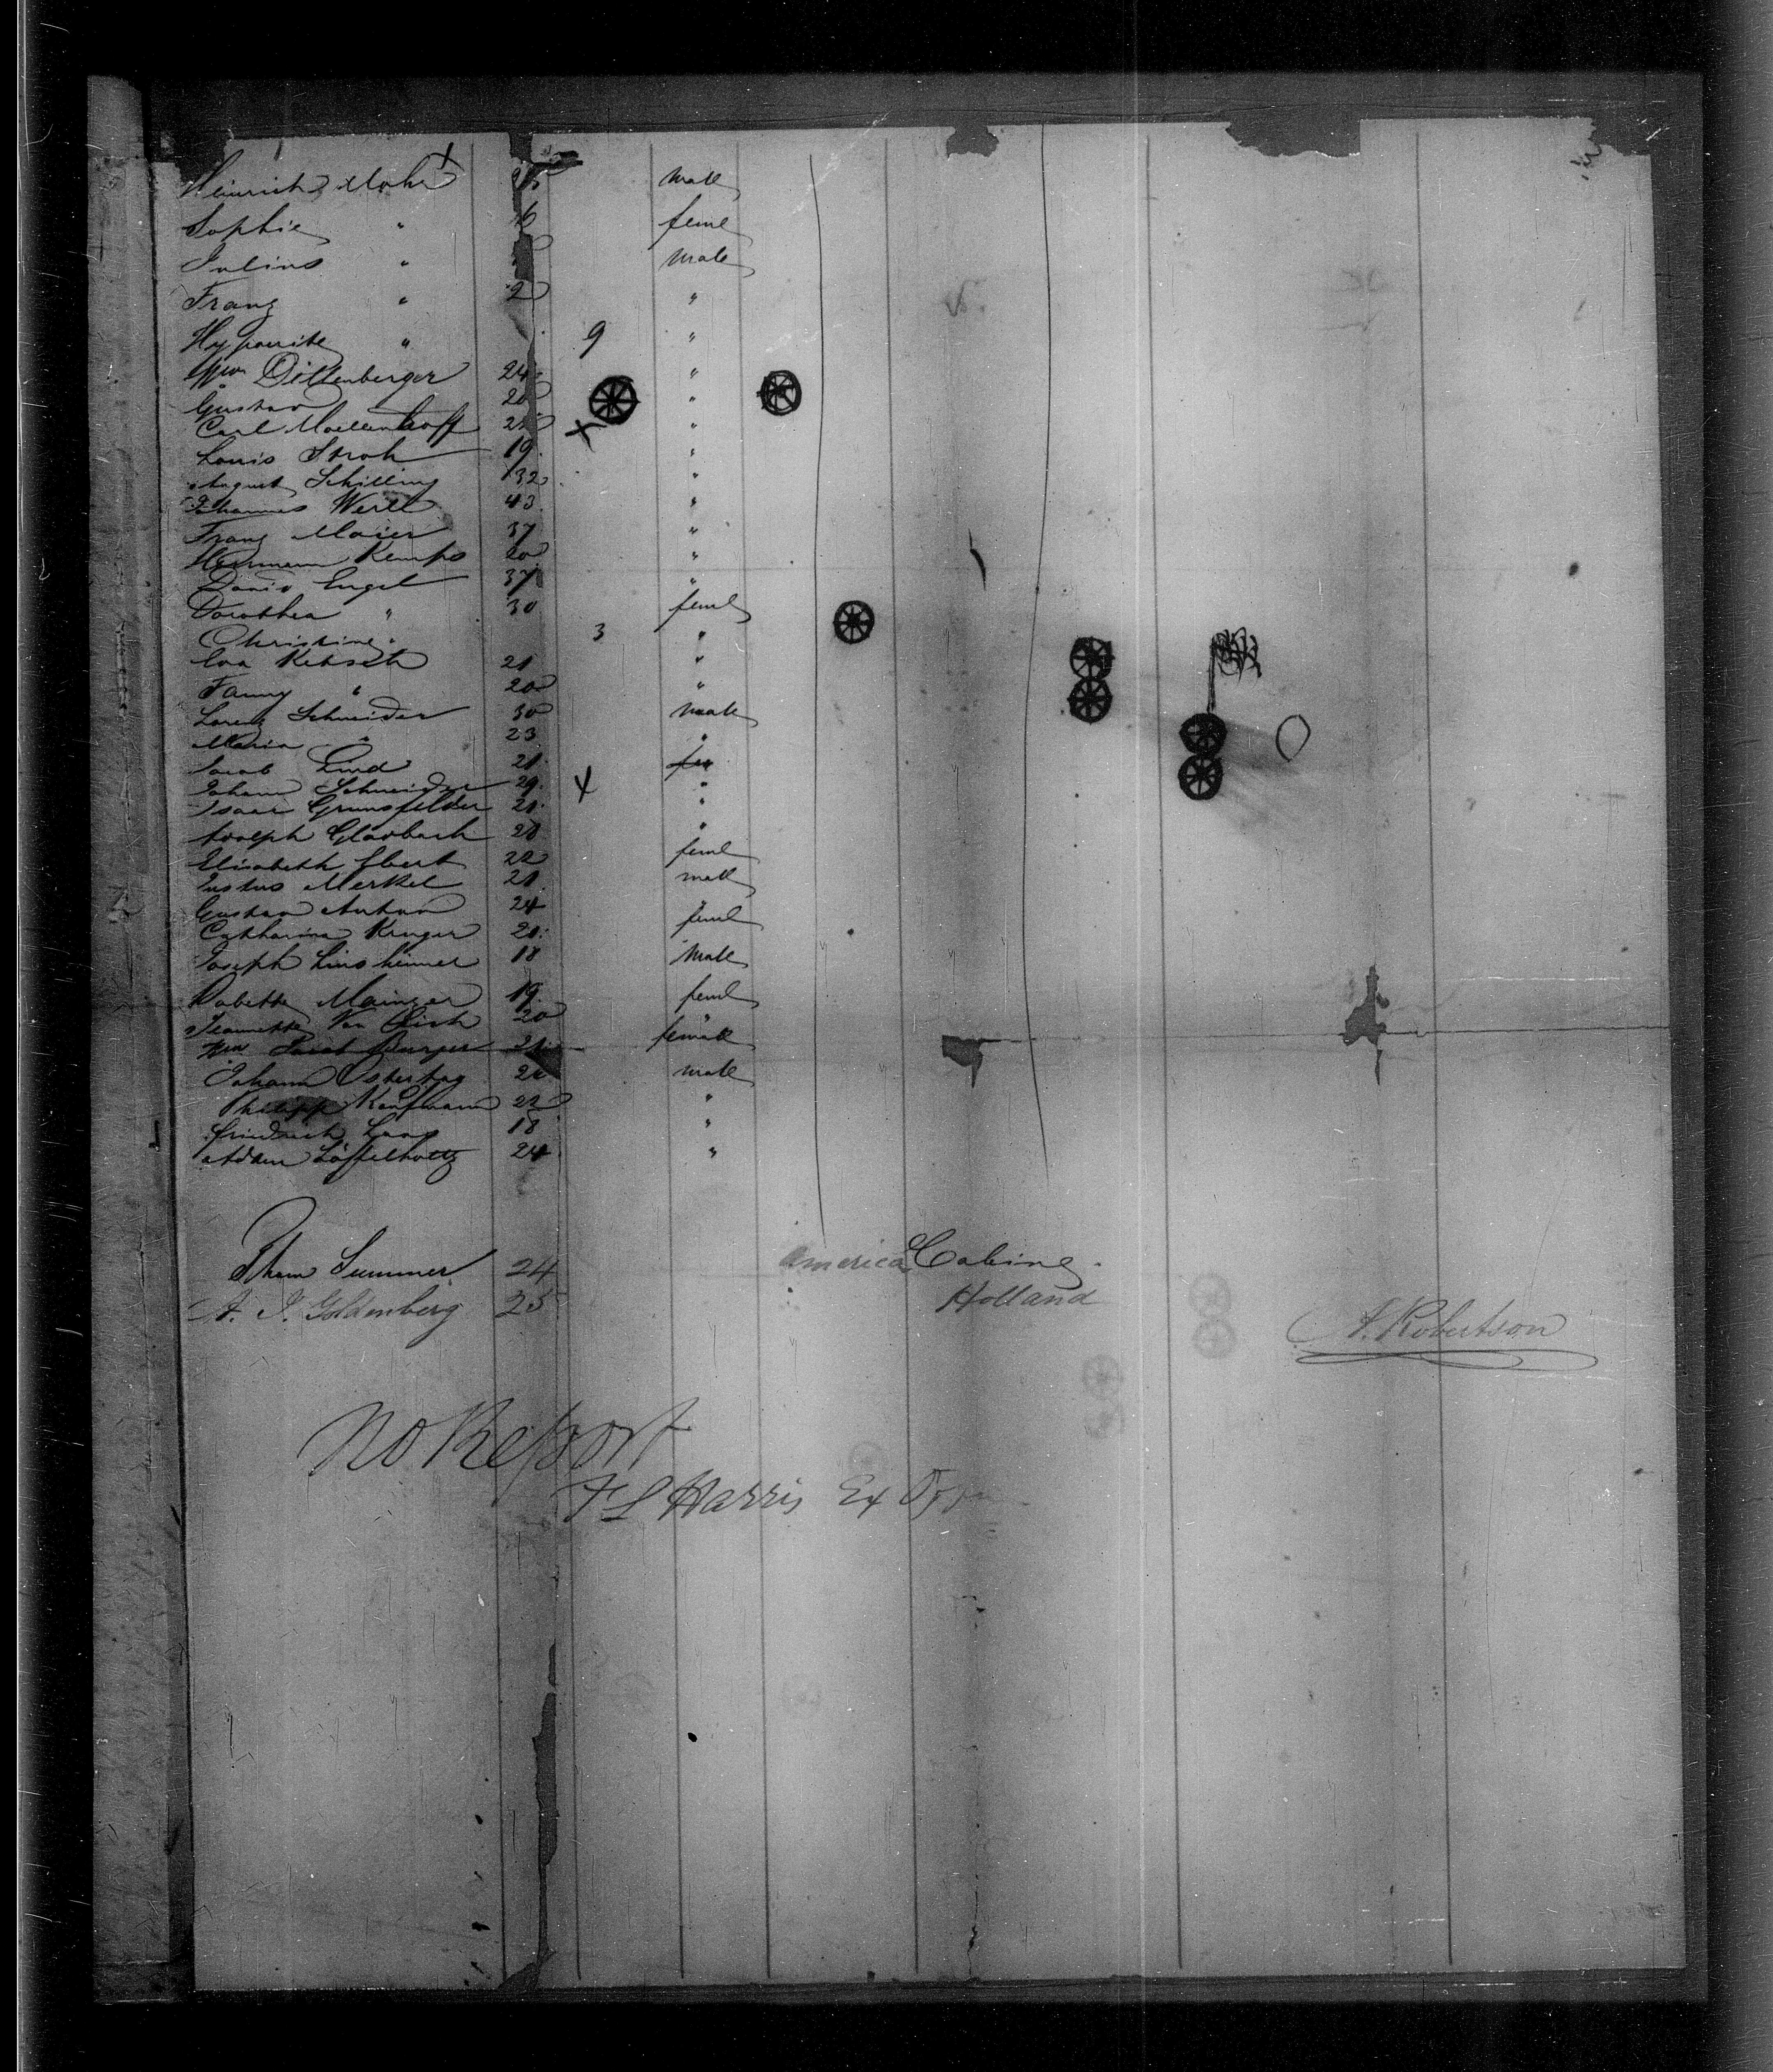 Heinrich Mohr male
Sophie " 6 feml
Julius " male
Franz " 2 "
" 9 "
Wm Dillenberger 24 "
Gustav " 20 "
Carl Moellenhoff "
Louis Stroh 19 "
August Schilling 32 "
Johannes Wertt 43 "
Franz Maier 37 "
Herrmann Kemps 20 "
David Engel 37 "
Dorothea " 30 feml
Christine " 3 "
Eva Kebsch 21 "
Fanny " 20 "
Lorenz Schneider 30 male
Maria " 23 "
Jacob Lind 21
Johann Schneider 29 "
Isaac Grunsfelder 21 "
Adolph Gladbach 20 "
Elisabeth Ebert 22 feml
Justus Merkel 21 male
Gustav 24 "
Catharina Kruger 21 feml
Joseph Linsheimer 18 male
Babette Mainzer 19 feml
Jeannette Van 20 "
Burger 21 female
Johann Ostertag male
Philipp Kaufmann 22 "
Friedrich Lang 18 "
Adam Löffelholtz 24 "
Summer 24 America Cabine
A. J. Goldenberg 25 Holland
A. Robertson
No Report
F L Harris Ex